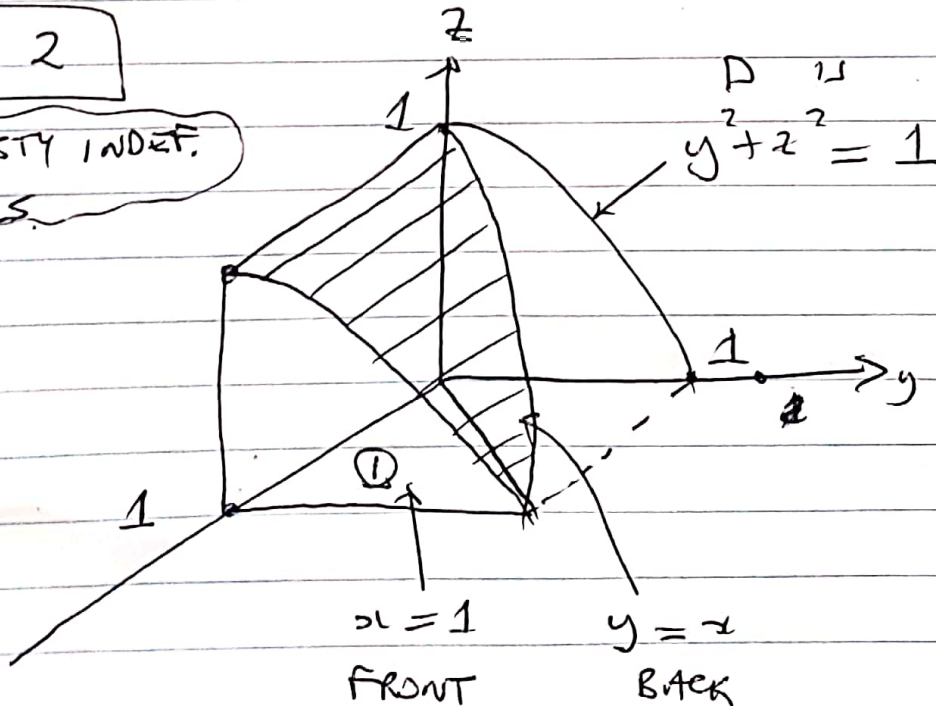 2
STY INDEF.
S.
z
1
D is
y² + z² = 1
1
y
1
①
1
x = 1
FRONT
y = x
BACK